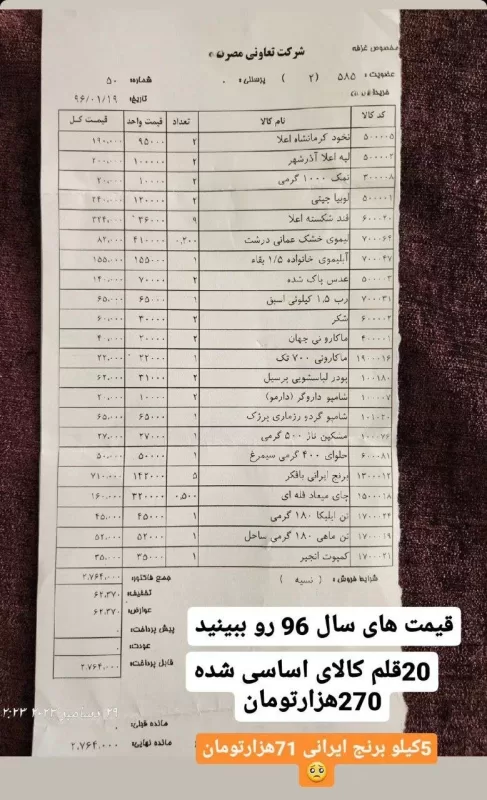 شرکت تعاونی مصرف
مخصوص غرفه
عضویت: ۵۸۵ (۲) پرسنلی: ۰
شماره: ۵۰
تاریخ: ۹۶/۰۱/۱۹
کد کالا نام کالا تعداد قیمت واحد قیمت کل
۵۰۰۰۰۵ نخود کرمانشاه اعلا ۲ ۹۵۰۰۰ ۱۹۰،۰۰۰
۵۰۰۰۰۲ لپه اعلا آذرشهر ۲ ۱۰۰۰۰۰ ۲۰۰،۰۰۰
۳۰۰۰۰۸ نمک ۱۰۰۰ گرمی ۲ ۱۰۰۰۰ ۲۰،۰۰۰
۵۰۰۰۰۱ لوبیا چیتی ۲ ۱۲۰۰۰۰ ۲۴۰،۰۰۰
۶۰۰۰۲۰ قند شکسته اعلا ۹ ۳۶۰۰۰ ۳۲۴،۰۰۰
۷۰۰۰۶۴ لیموی خشک عمانی درشت ۰.۲۰۰ ۴۱۰۰۰۰ ۸۲،۰۰۰
۷۰۰۰۴۷ آبلیموی خانواده ۱/۵ ۱ ۱۵۵۰۰۰ ۱۵۵،۰۰۰
۵۰۰۰۰۳ عدس پاک شده ۲ ۷۰۰۰۰ ۱۴۰،۰۰۰
۷۰۰۰۳۱ رب ۱.۵ کیلوئی اسبق ۱ ۶۵۰۰۰ ۶۵،۰۰۰
۶۰۰۰۰۲ شکر ۲ ۳۰۰۰۰ ۶۰،۰۰۰
۴۰۰۰۰۱ ماکارونی جهان ۲ ۲۰۰۰۰ ۴۰،۰۰۰
۱۹۰۰۰۱۶ ماکارونی ۷۰۰ تک ۱ ۲۲۰۰۰ ۲۲،۰۰۰
۱۰۰۱۸۰ پودر لباسشویی پرسیل ۲ ۳۱۰۰۰ ۶۲،۰۰۰
۱۰۰۰۰۷ شامپو داروگر (دارمو) ۲ ۱۰۰۰۰ ۲۰،۰۰۰
۱۰۱۰۲۰ شامپو گردو رزماری پرژک ۱ ۶۵۰۰۰ ۶۵،۰۰۰
۱۰۰۰۷۶ مشکین تاژ ۵۰۰ گرمی ۱ ۲۷۰۰۰ ۲۷،۰۰۰
۶۰۰۰۸۱ حلوای ۴۰۰ گرمی سیمرغ ۱ ۵۰۰۰۰ ۵۰،۰۰۰
۱۳۰۰۰۱۲ برنج ایرانی بافکر ۵ ۱۴۲۰۰۰ ۷۱۰،۰۰۰
۱۵۰۰۰۱۸ چای میعاد فله ای ۰.۵۰۰ ۳۲۰۰۰۰ ۱۶۰،۰۰۰
۱۷۰۰۰۲۴ تن ایلیکا ۱۸۰ گرمی ۱ ۴۵۰۰۰ ۴۵،۰۰۰
۱۷۰۰۰۱۹ تن ماهی ۱۸۰ گرمی ساحل ۱ ۵۲۰۰۰ ۵۲،۰۰۰
۱۷۰۰۰۲۱ کمپوت انجیر ۱ ۳۵۰۰۰ ۳۵،۰۰۰
شرایط فروش: ( نسیه ) جمع فاکتور: ۲.۷۶۴،۰۰۰
تخفیف: ۶۲،۳۷۰
عوارض: ۶۲،۳۷۰
پیش پرداخت: ۰
عودت: ۰
قابل پرداخت: ۲.۷۶۴،۰۰۰
مانده قبلی: ۰
مانده نهایی: ۲.۷۶۴.۰۰۰
قیمت های سال 96 رو ببینید
20قلم کالای اساسی شده
270هزارتومان
5کیلو برنج ایرانی 71هزارتومان
🥺